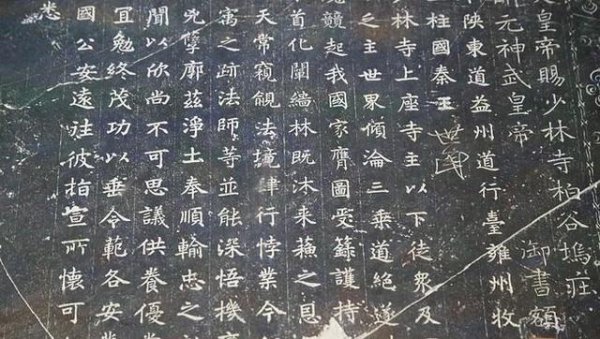 皇帝賜少林寺柏谷塢莊
元神武皇帝 御書額
陝東道益州道行臺雍州牧
柱國秦王世民
林寺上座寺主以下徒眾及
之主世界傾淪三乘道絕
競起我國家膺圖受籙護持
首化闡緇林既沐來蘇之恩
天常窺覦法境肆行悖業今
寓之跡法師等並能深悟機
兇孽廓茲淨土奉順輸忠之
聞以欣尚不可思議供養優
宜勉終茂功以垂令範各安
國公安遠往彼指宣所懷可
悉